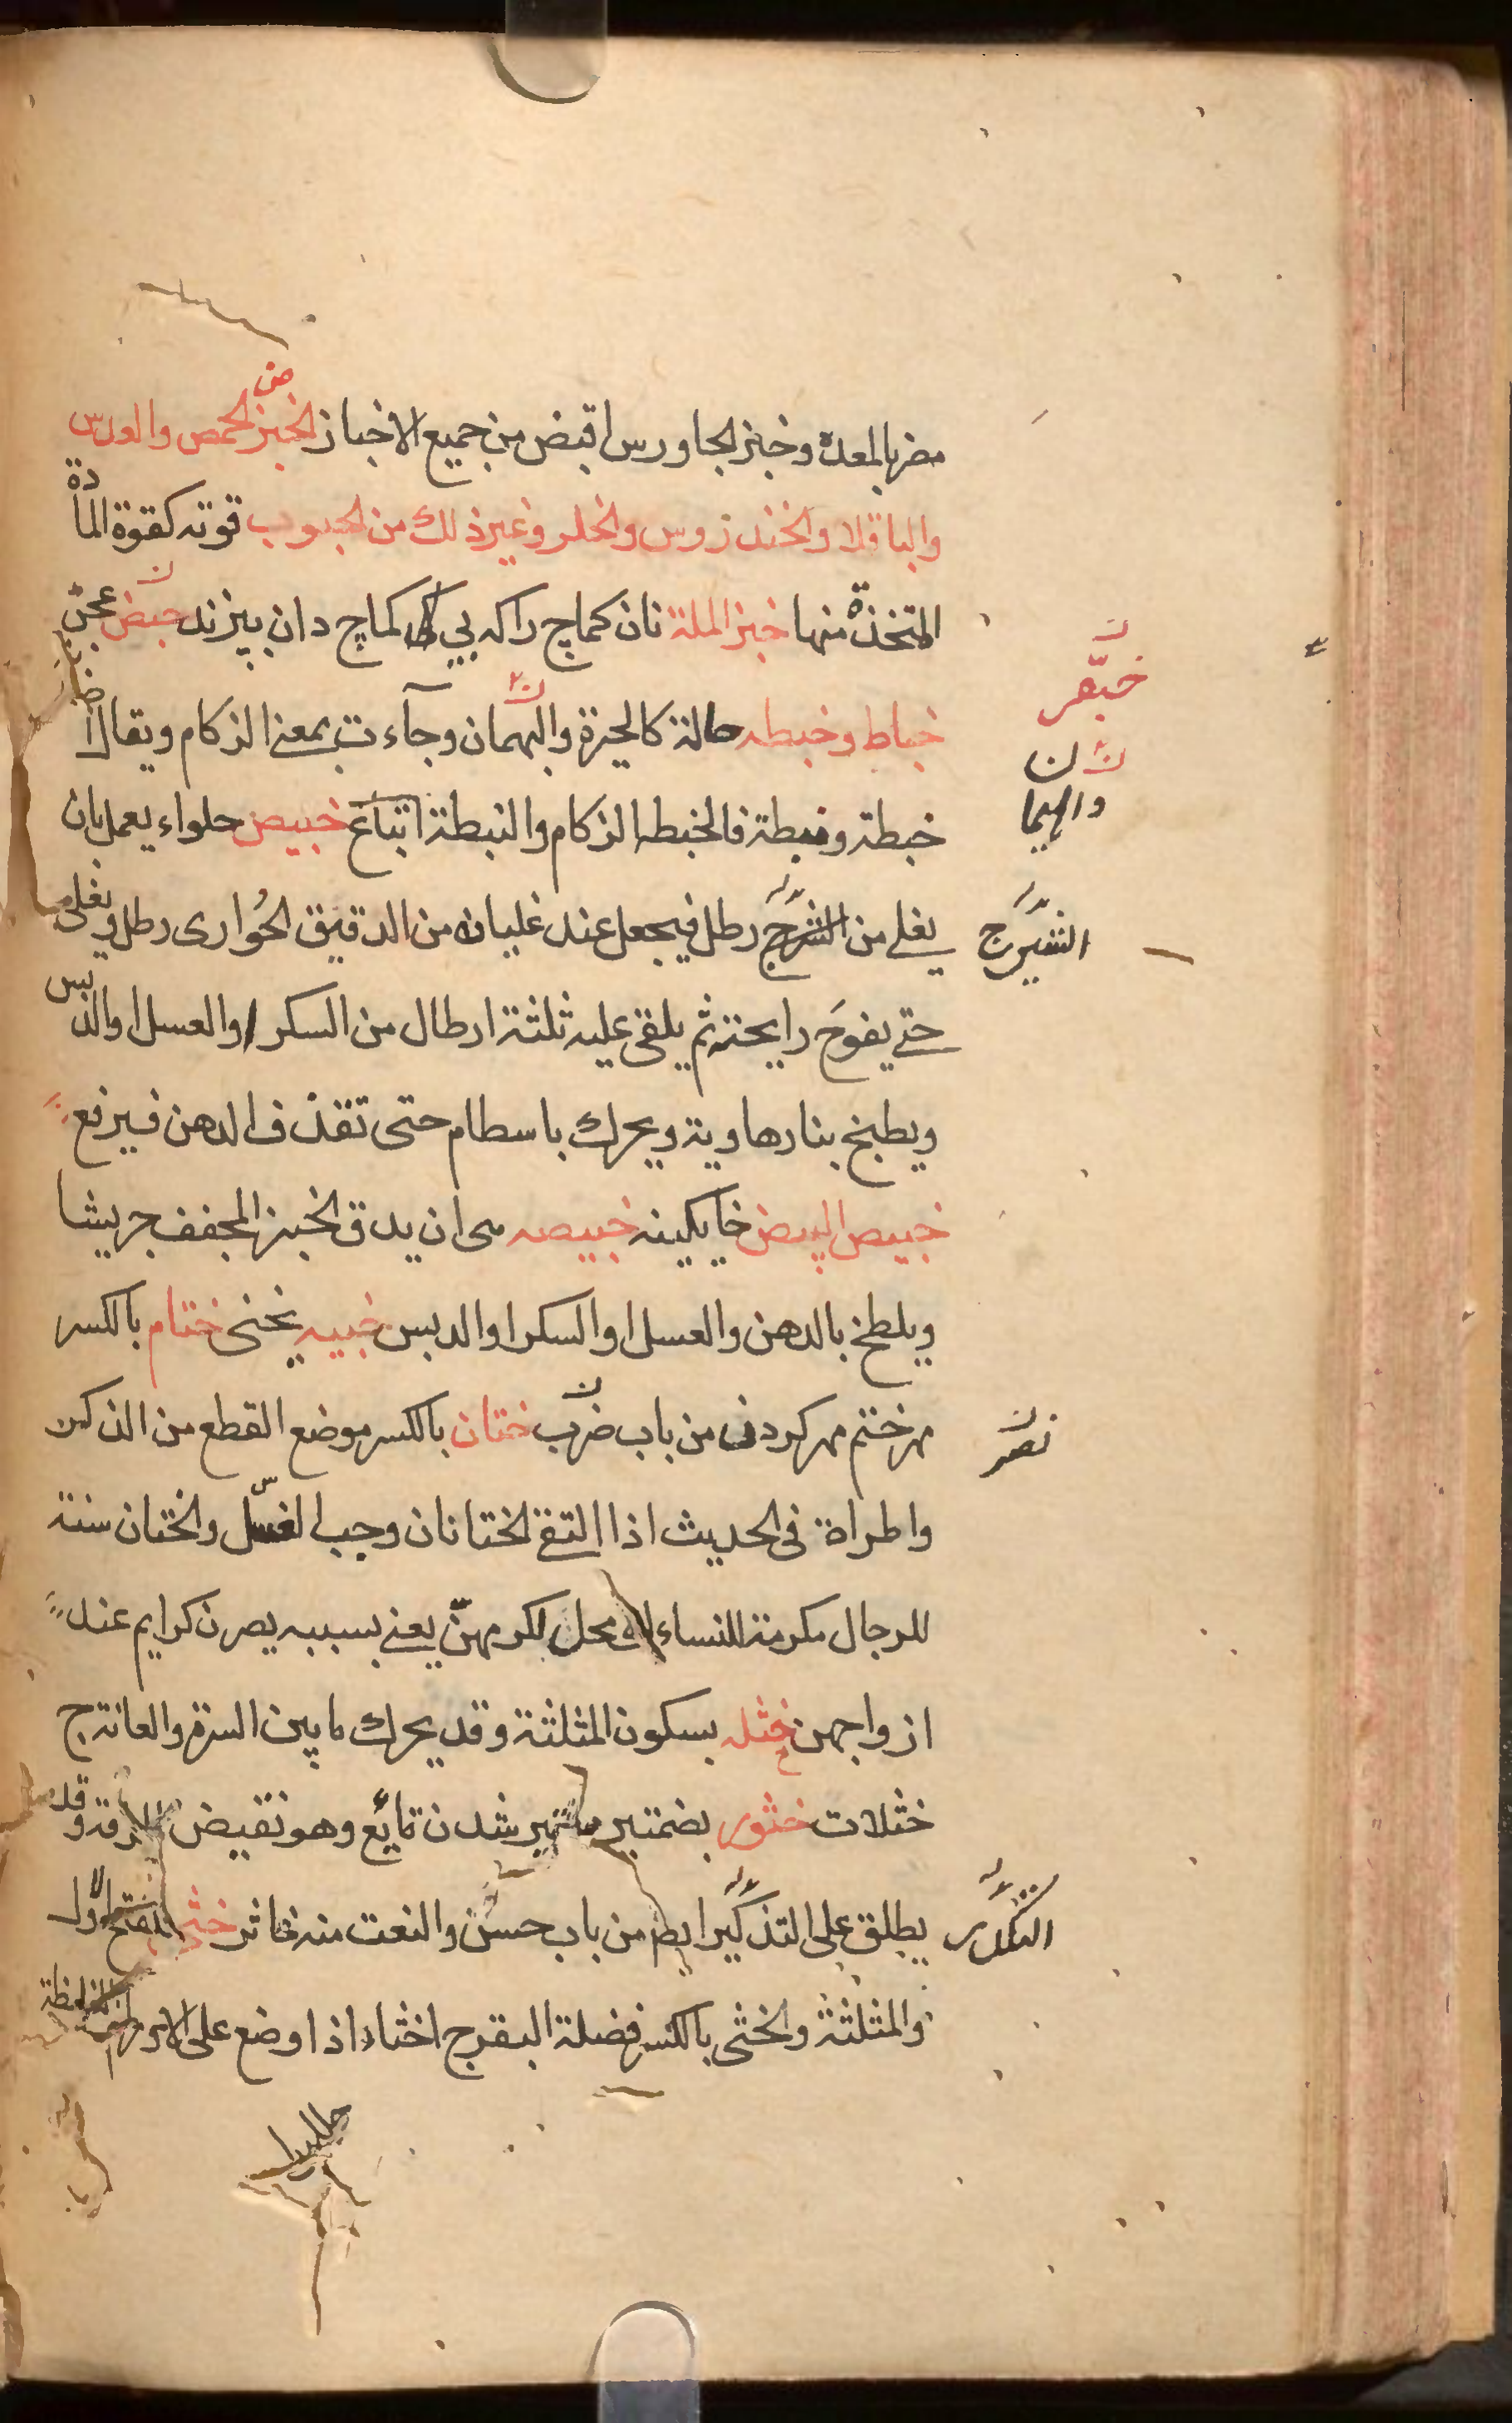 مضر بالمعدة وخبز الجاورس اقبض من جميع الاخباز الخبز من الحمص والعدس
والباقلا والخندروس والخلر وغير ذلك من الحبوب قوته كقوة المادة
المتخذة منها خبز الملة نان كماج را كه بي كماج دان بپزند عجن
خباط وخبطه حالة كالحيرة والبهمان وجآءت بمعنى الزكام ويقال
خبطة ونبطة فالخبطه الزكام والنبطة اتباع خبيص حلواء يعمل بان
يغلى من الشرج رطل فيجعل عند غليانه من الدقيق الحُوارى رطل ويغلى
حتى يفوح رايحته ثم يلقى عليه ثلثة ارطال من السكر والعسل او الدبس
ويطبخ بنار هاوية ويحرك باسطام حتى تقذف الدهن فيرفع
خبيص البيض خايكينه خبيصه هى ان يدق الخبز المجفف جريشا
ويلطخ بالدهن والعسل او السكر او الدبس خبيه يخنى ختام بالكسر
مهر ختم مهر كردن من باب ضرب ختان بالكسر موضع القطع من الذكر
وامراة فى الحديث اذا التقى الختانان وجب الغسل والختان سنة
للرجال مكرمة للنساء محل لكرمهنّ يعنى بسببه يصرن كرايم عند
ازواجهن خثله بسكون المثلثة وقد يحرك ما بين السرة والعانة ج
خثلات خثور بضمتين شدن مايع وهو نقيض الرقة وقد
يطلق على التذكير ايض من باب حسن والنعت منه خاثر
والمثلثة والخثى بالكسر فضلة البقر ج اخثاء اذا وضع على
خبّعر
ن ن
والهيما
الشيرج
نصر
التكدر